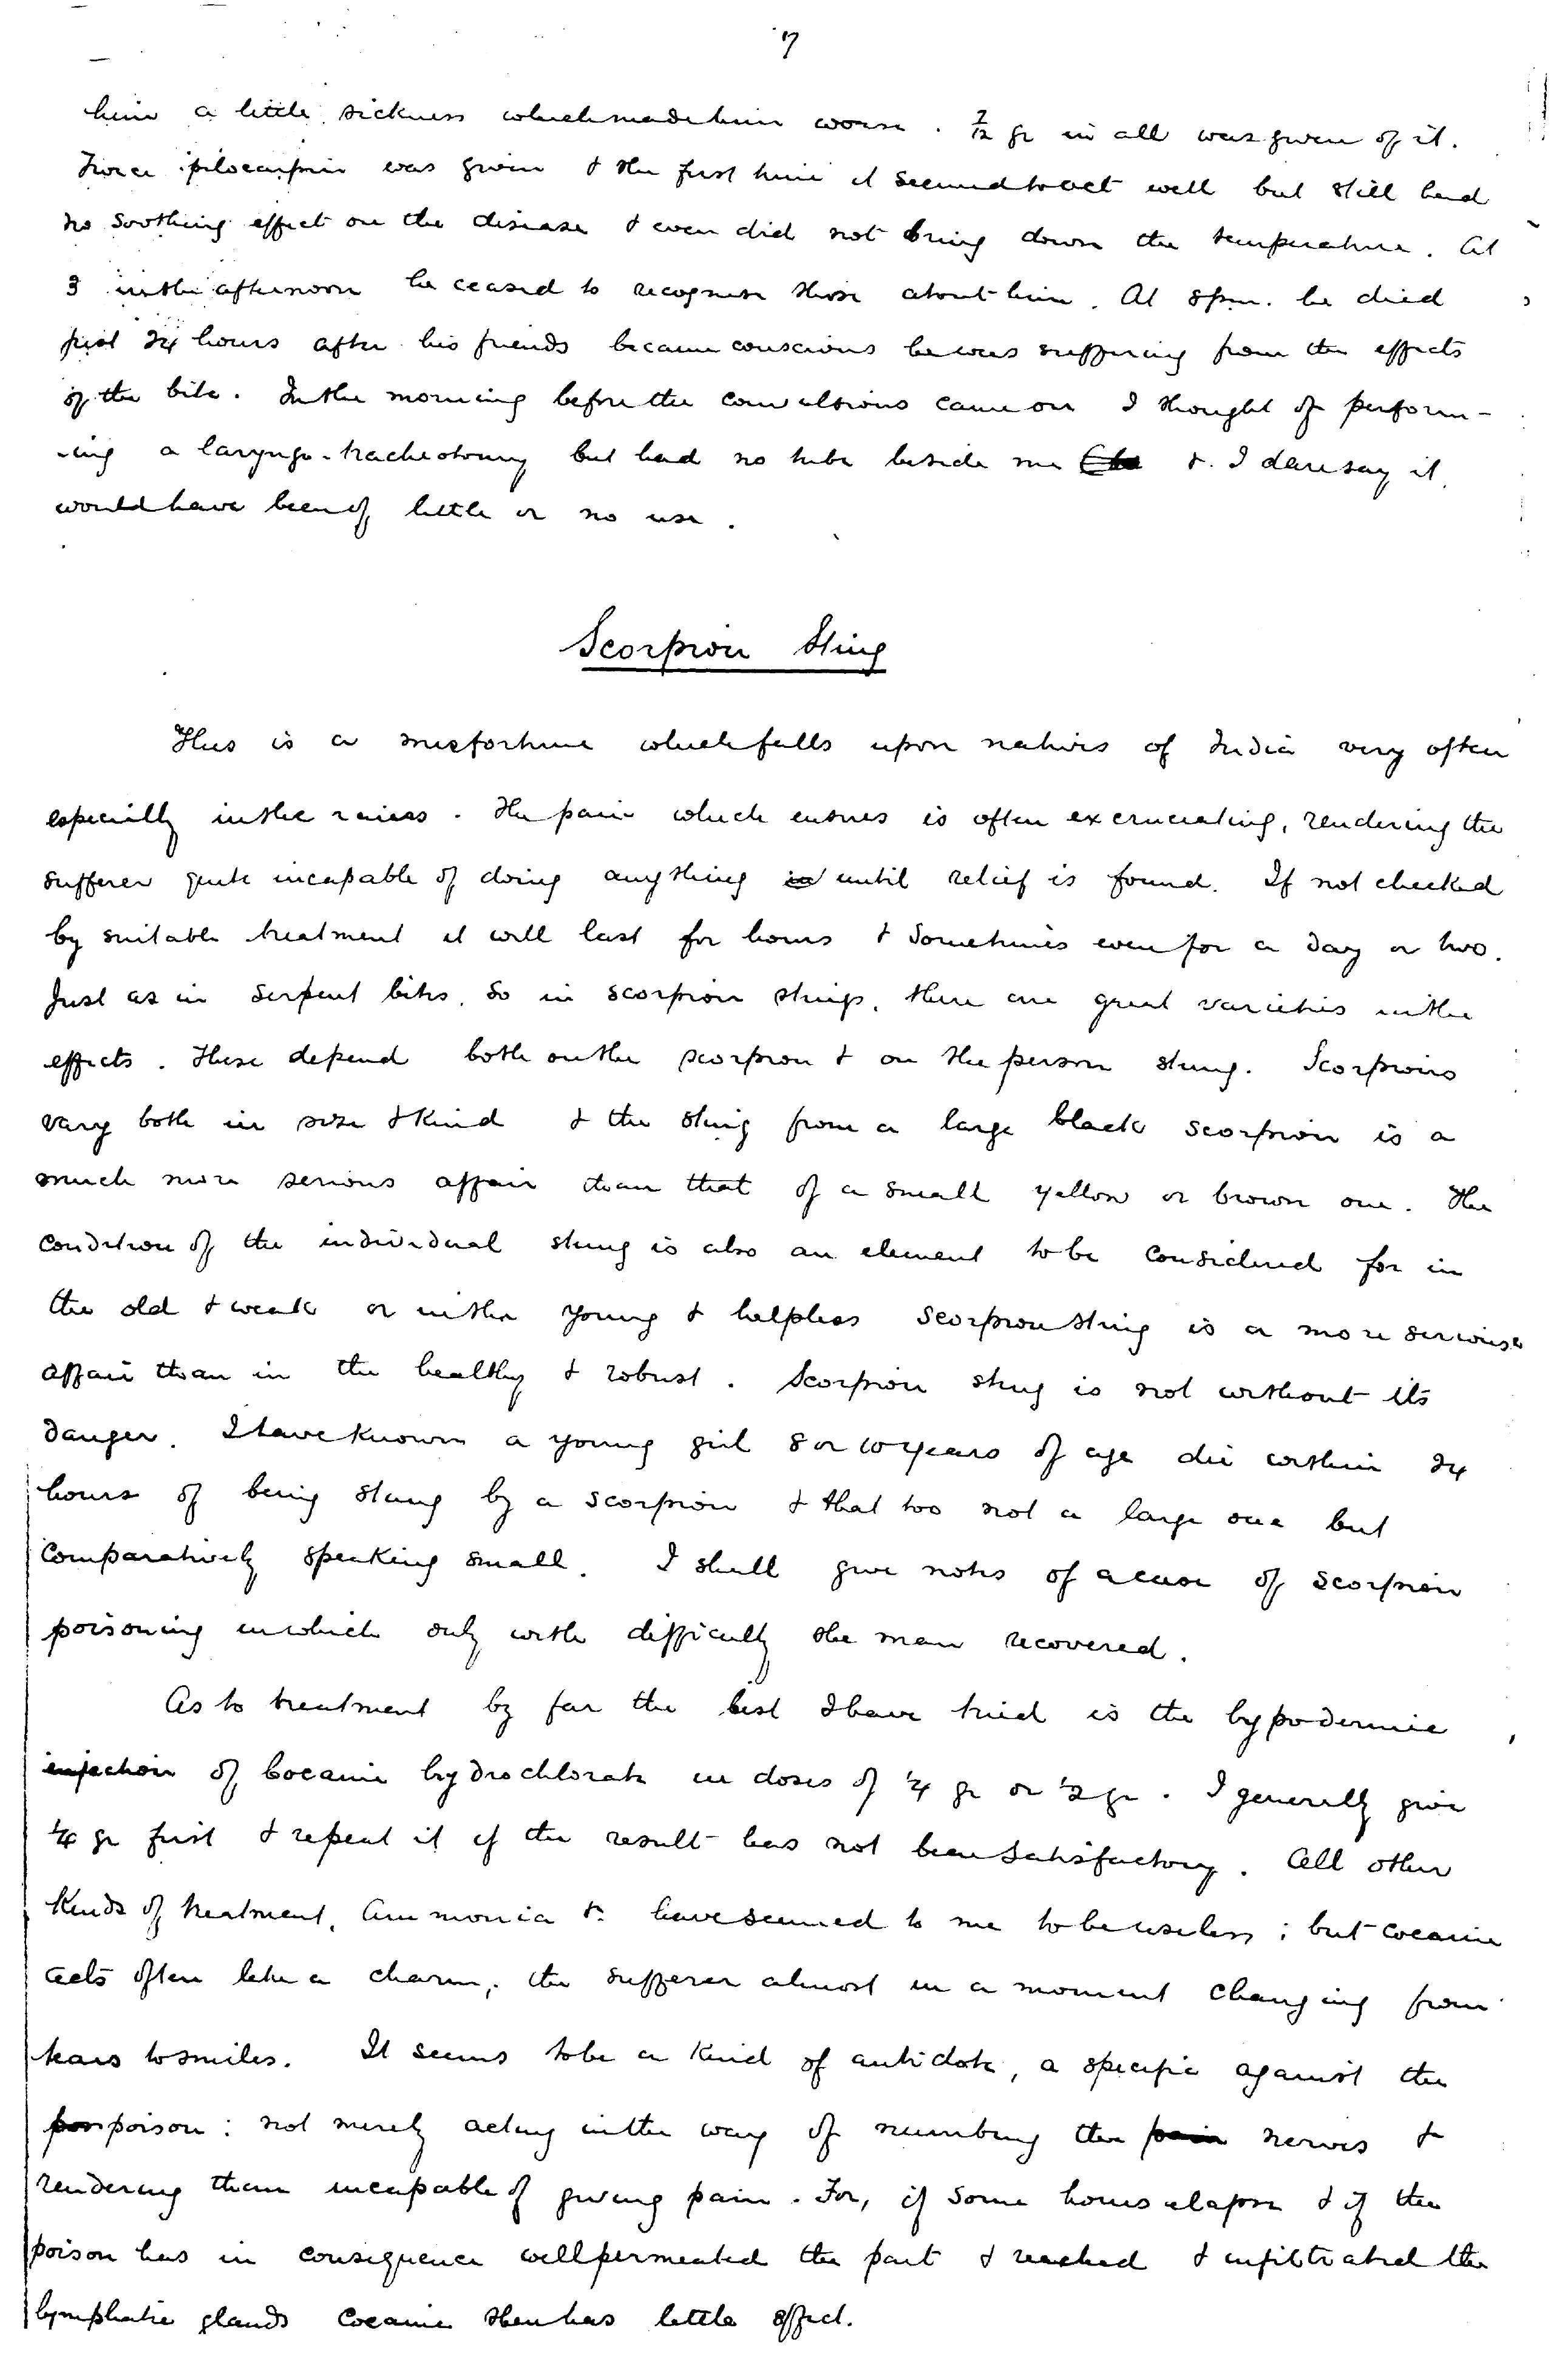 7
him a little sickness which made him worse. 7/12 gr in all was given of it.
Twice pilocarpin was given & the first time it seemed to act well but still had
no soothing effect on the disease & even did not bring down the temperature. At
3 in the afternoon he ceased to recognise those about him. At 8 pm. he died
just 24 hours after his friends became conscious he was suffering from the effects
of the bite. In the morning before the convulsions came on I thought of perform-
-ing a laryngo-tracheotomy but had no tube beside me & I daresay it
would have been of little or no use.
Scorpion Sting
This is a misfortune which falls upon natives of India very often
especially in the rains. The pain which ensues is often excruciating, rendering the
sufferer quite incapable of doing anything in until relief is found. If not checked
by suitable treatment it will last for hours & sometimes even for a day or two.
Just as in serpent bites, so in scorpion stings, there are great varieties in the
effects. These depend both on the scorpion & on the person stung. Scorpions
vary both in size & kind & the sting from a large black scorpion is a
much more serious affair than that of a small yellow or brown one. The
condition of the individual stung is also an element to be considered for in
the old & weak or in the young & helpless scorpion sting is a more serious
affair than in the healthy & robust. Scorpion sting is not without its
danger. I have known a young girl 8 or 10 years of age die within 24
hours of being stung by a scorpion & that too not a large one but
comparatively speaking small. I shall give notes of a case of scorpion
poisoning in which only with difficulty the man recovered.
As to treatment by far the best I have tried is the hypodermic
injection of Cocaine hydrochlorate in doses of 1/4 gr or 1/2 gr. I generally give
1/4 gr first & repeat it if the result has not been satisfactory. All other
kinds of treatment, Ammonia &c have seemed to me to be useless; but cocaine
acts often like a charm, the sufferer almost in a moment changing from
tears to smiles. It seems to be a kind of antidote, a specific against the
poi poison: not merely acting in the way of numbing the pain nerves &
rendering them incapable of giving pain. For, if some hours elapse & if the
poison has in consequence well permeated the part & reached & infiltrated the
lymphatic glands Cocaine then has little effect.